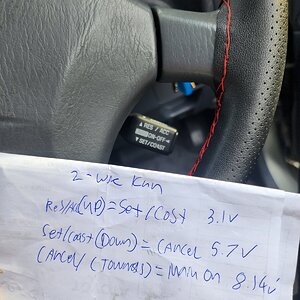 ▲ RES / ACC
ON-OFF
▼ SET/COAST
2-wire
Res/Acc(UP)=Set/Cost 3.1V
Set/Coast(Down)=Cancel 5.7V
Cancel/(Towards)= Main On 8.14V